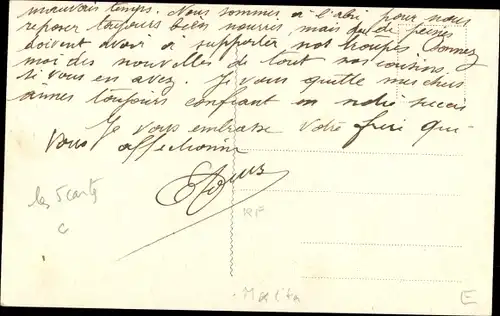 mauvais temps. Nous sommes à l'abri pour nous
reposer toujours bien nourris, mais que de peines
doivent avoir à supporter nos troupes. Donnez
moi des nouvelles de tout nos cousins.
si vous en avez. Je vous quitte mes chers
aines toujours confiant en notre succès
Je vous embrasse Votre frère qui
vous affectionne
les 5 carts
RF
E